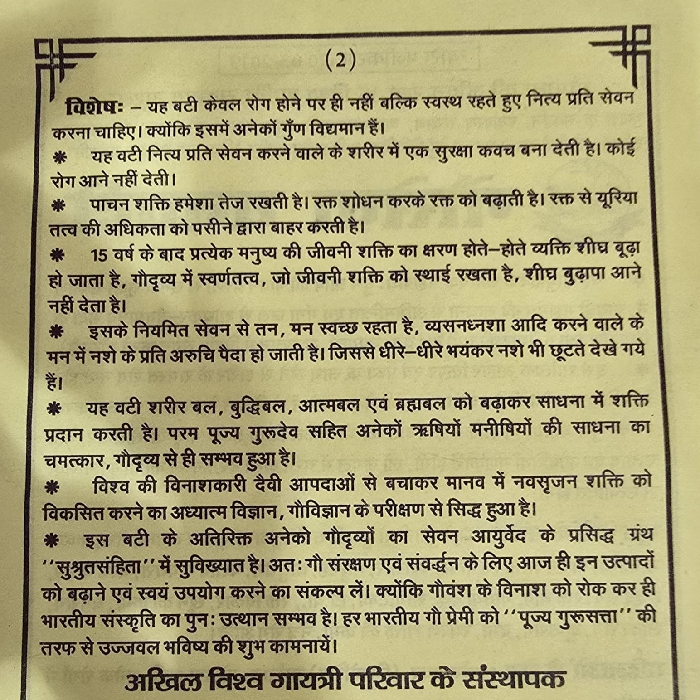 (2)
विशेषः – यह बटी केवल रोग होने पर ही नहीं बल्कि स्वस्थ रहते हुए नित्य प्रति सेवन
करना चाहिए। क्योंकि इसमें अनेकों गुँण विद्यमान हैं।
* यह वटी नित्य प्रति सेवन करने वाले के शरीर में एक सुरक्षा कवच बना देती है। कोई
रोग आने नहीं देती।
* पाचन शक्ति हमेशा तेज रखती है। रक्त शोधन करके रक्त को बढ़ाती है। रक्त से यूरिया
तत्व की अधिकता को पसीने द्वारा बाहर करती है।
* 15 वर्ष के बाद प्रत्येक मनुष्य की जीवनी शक्ति का क्षरण होते–होते व्यक्ति शीघ्र बूढ़ा
हो जाता है, गौदृव्य में स्वर्णतत्व, जो जीवनी शक्ति को स्थाई रखता है, शीघ्र बुढ़ापा आने
नहीं देता है।
* इसके नियमित सेवन से तन, मन स्वच्छ रहता है, व्यसनध्नशा आदि करने वाले के
मन में नशे के प्रति अरुचि पैदा हो जाती है। जिससे धीरे–धीरे भयंकर नशे भी छूटते देखे गये
हैं।
* यह वटी शरीर बल, बुद्धिबल, आत्मबल एवं ब्रह्मबल को बढ़ाकर साधना में शक्ति
प्रदान करती है। परम पूज्य गुरूदेव सहित अनेकों ऋषियों मनीषियों की साधना का
चमत्कार, गौदृव्य से ही सम्भव हुआ है।
* विश्व की विनाशकारी दैवी आपदाओं से बचाकर मानव में नवसृजन शक्ति को
विकसित करने का अध्यात्म विज्ञान, गौविज्ञान के परीक्षण से सिद्ध हुआ है।
* इस बटी के अतिरिक्त अनेको गौदृव्यों का सेवन आयुर्वेद के प्रसिद्ध ग्रंथ
''सुश्रुतसंहिता'' में सुविख्यात है। अतः गौ संरक्षण एवं संवर्द्धन के लिए आज ही इन उत्पादों
को बढ़ाने एवं स्वयं उपयोग करने का संकल्प लें। क्योंकि गौवंश के विनाश को रोक कर ही
भारतीय संस्कृति का पुनः उत्थान सम्भव है। हर भारतीय गौ प्रेमी को ''पूज्य गुरूसत्ता'' की
तरफ से उज्जवल भविष्य की शुभ कामनायें।
अखिल विश्व गायत्री परिवार के संस्थापक